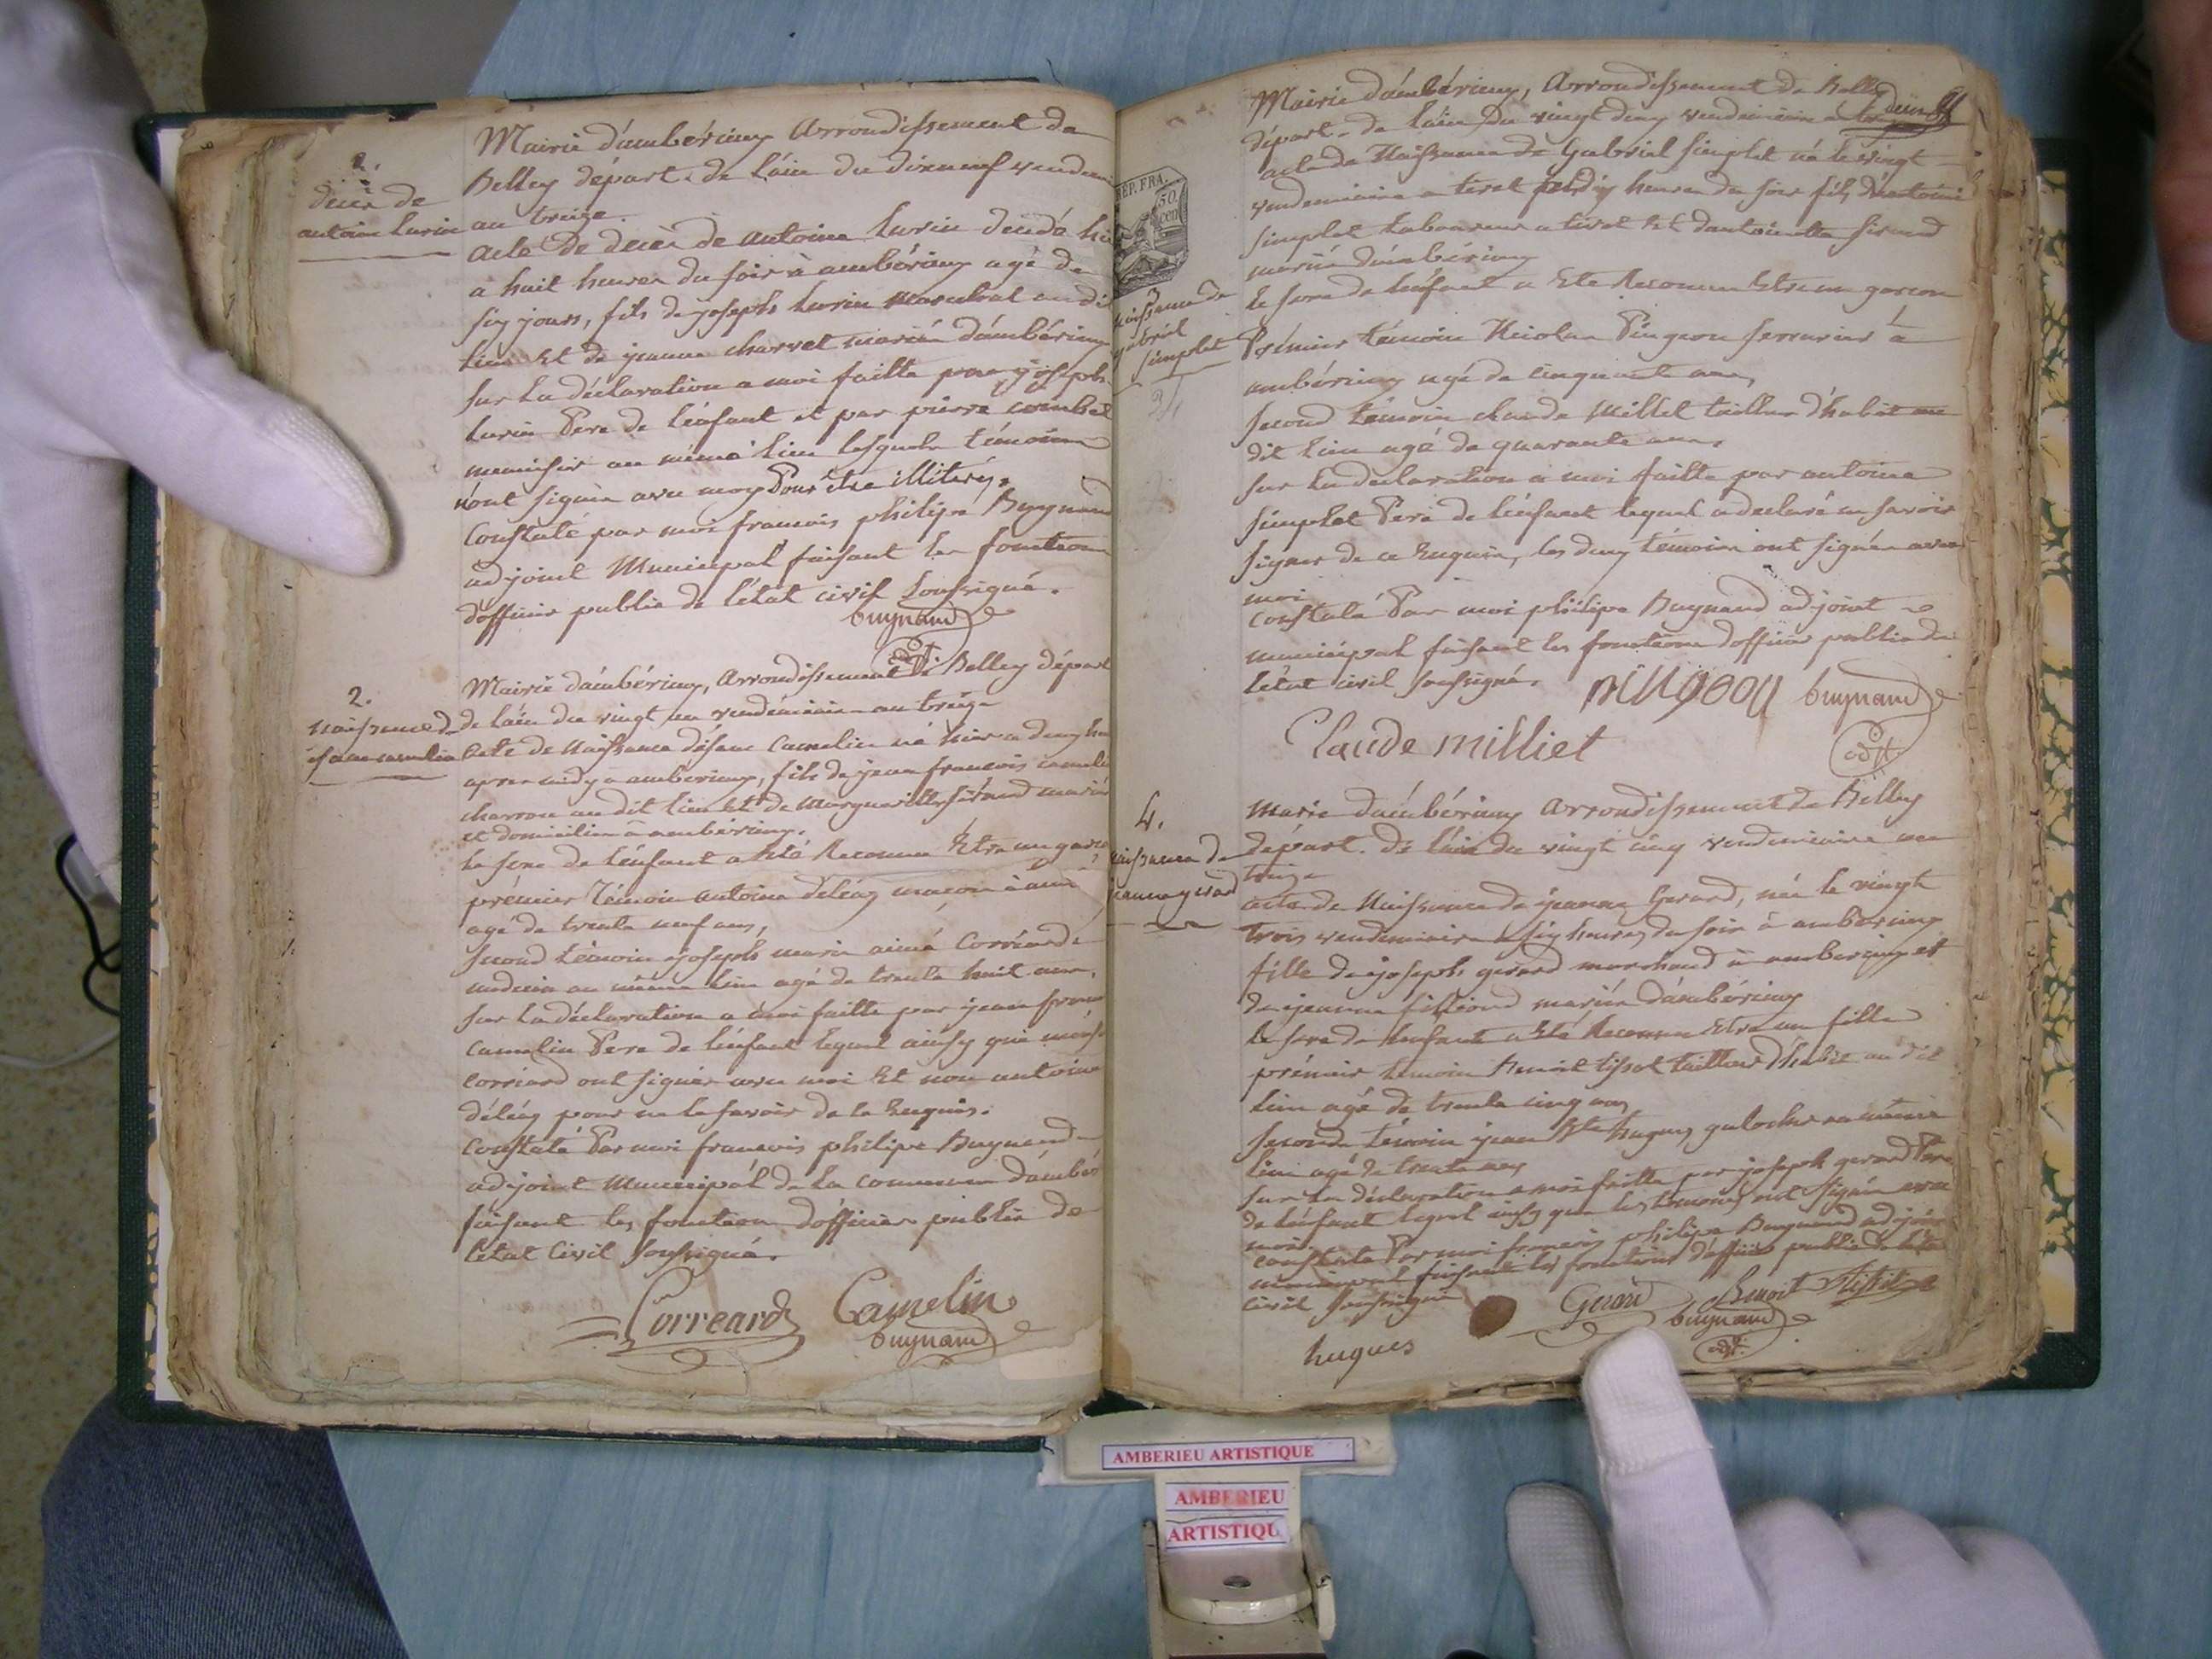 2.
décès de
antoine lurin
Mairie d'ambérieux Arrondissement de
Belley départ. de l'ain du dixneuf vendem
an treize.
acte de décès de antoine lurin décédé hi
a huit heures du soir à ambérieux agé de
six jours, fils de joseph lurin marechal au di
lieu Et de jeanne charvet mariés d'ambérieux
sur la déclaration a moi faitte par joseph
lurin Pere de l'enfant et par pierre combet
menuisier au même lieu lesquels témoins
n'ont signés avec moy Pour être illiterés.
Constaté par moi francois philipe Buynand
adjoint Municipal faisant les fonctions
d'officier public de l'état civil soussigné.
buynand
adjt.
2.
naissance de
camelin
Mairie d'ambérieux, Arrondissement de Belley départ
de l'ain du vingt un vendémiaire an treize
acte de Naissance camelin né hier a deux he
apres midy a amberieux, fils de jean francois camelin
charron au dit lieu Et de Margueritte sirand mariés
et domiciliés à ambérieux.
le sexe de l'enfant a Eté Reconnu Etre un garçon
prémier Témoin antoine déléaz maçon à amb
agé de trente neuf ans,
second témoin joseph marie aimé Corréard
médecin au même lieu agé de trente huit ans.
sur la déclaration a moi faitte par jean franc
camelin Pere de l'enfant lequel ainsy que
corréard ont signés avec moi Et non antoine
déléaz pour ne le savoir de ce Enquis.
Constaté Par moi francois philipe Buynand
adjoint Municipal de la commune d'ambér
faisant les fonction d'officier public de
l'état Civil soussigné.
Correard Camelin
buynand
Mairie d'ambérieux, Arrondissement de Belley
deux
départ. de l'ain Du vingt deux vendémiaire an
acte de Naissance de Gabriel simplet né le vingt
vendemiaire a tiret dix heures du soir fils d'antoine
simplet Laboureur a tiret Et d'antoinette sirand
mariés d'ambérieux
REP. FRA.
50
cen
3
naissance de
gabriel
simplet
le sexe de l'enfant a Eté Reconnu Etre un garcon
Prémier témoin Nicolas Pingeon serrurier à
ambérieux agé de cinquante ans,
second témoin claude Millet tailleur d'habit au
dit lieu agé de quarante ans,
sur la declaration a moi faitte par antoine
simplet Pere de l'enfant lequel a declaré ne savoir
signer de ce Enquis, les deux témoins ont signés avec
moi
Constaté Par moi philipe Buynand adjoint
municipal faisant les fonctions d'officier public de
l'état civil soussigné.
buynand
Claude milliet
adjt
4.
naissance de
jeanne gerard
Mairie d'ambérieux Arrondissement de Belley
départ. de l'ain du vingt cinq vendemiaire an
treize
acte de Naissance de jeanne Gerard, née le vingt
trois vendemiaire a six heures du soir à amberieux
fille de joseph gerard marchand à amberieux et
de jeanne mariés d'ambérieux
le sexe de l'enfant a Eté Reconnu Etre une fille
prémier témoin Benoit tissot tailleur d'habit au dit
lieu agé de trente cinq ans
second témoin jean Bte hugues galocher au même
lieu agé de trente ans
sur la déclaration a moi faitte par joseph gerard Pere
de l'enfant lequel ainsy que les temoins ont signés avec
moi.
Constaté Par moi francois philipe Buynand adjoint
municipal faisant les fonctions d'officier public de l'état
civil soussigné
Gerard Benoit
buynand
adjt.
hugues
AMBERIEU ARTISTIQUE
AMBERIEU
ARTISTIQU